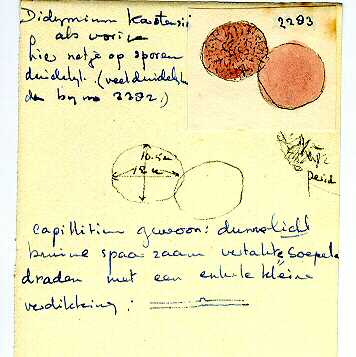 Didymium Karstensii
als vorige
hier netje op sporen
duidelijk. (veel duidelijk
dan by no 2292.)
2293
10.5u
12 u
perid
capillitium gewoon: dunne licht
bruine spaarzaam vertakte soepele
draden met een enkele kleine
verdikking: